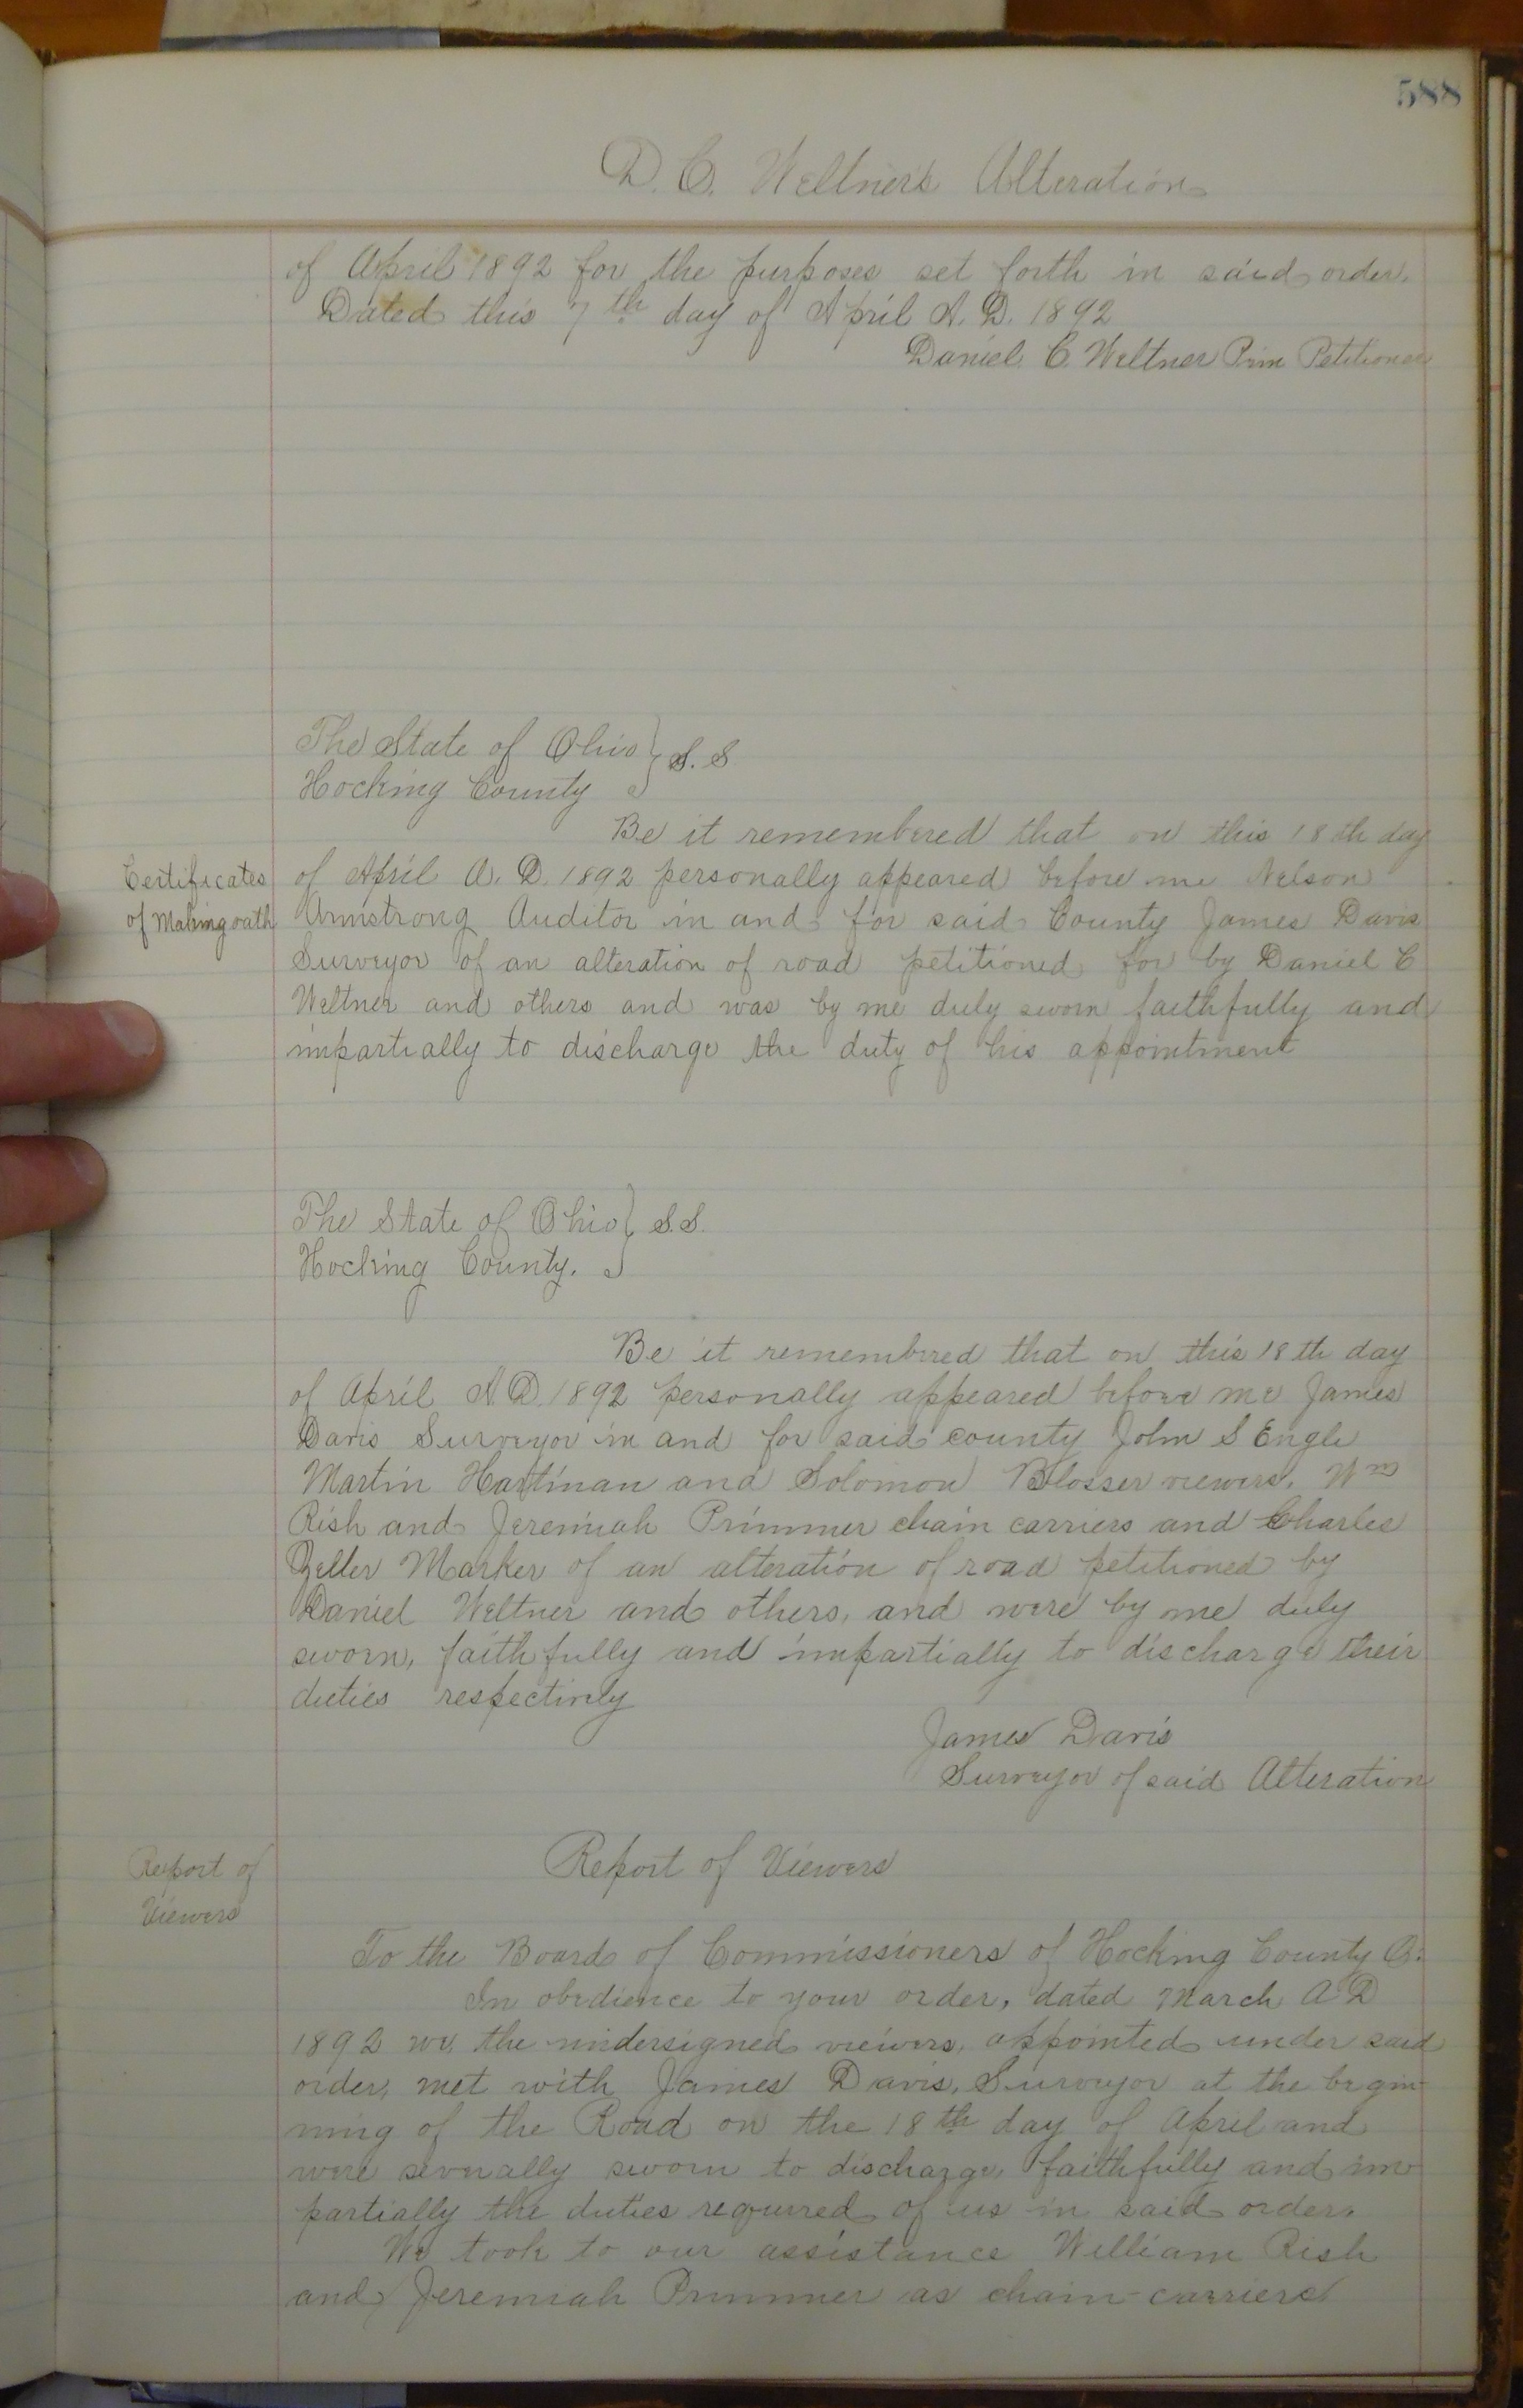 588
D. C. Weltner's Alteration
of April 1892 for the purposes set forth in said order.
Dated this 7th day of April A. D. 1892
Daniel C. Weltner Prin Petitioner
The State of Ohio } S. S
Hocking County
Be it remembered that on this 18th day
Certificates
of April A. D. 1892 personally appeared before me Nelson
of Making oath
Armstrong Auditor in and for said County James Davis
Surveyor of an alteration of road petitioned for by Daniel C
Weltner and others and was by me duly sworn faithfully and
impartially to discharge the duty of his appointment
The State of Ohio } S.S.
Hocking County.
Be it remembered that on this 18th day
of April A.D. 1892 personally appeared before me James
Davis Surveyor in and for said county John S Engle
Martin Hartman and Solomon Blosser viewers. Wm
Rish and Jeremiah Primmer chain carriers and Charles
Zeller Marker of an alteration of road petitioned by
Daniel Weltner and others, and were by me duly
sworn, faithfully and impartially to discharge their
duties respectively
James Davis
Surveyor of said Alteration
Report of
Viewers
Report of Viewers
To the Board of Commissioners of Hocking County O.
In obedience to your order, dated March A D
1892 we, the undersigned viewers, appointed under said
order, met with James Davis, Surveyor at the begin-
ning of the Road on the 18th day of April and
were severally sworn to discharge, faithfully and im-
partially the duties required of us in said order.
We took to our assistance William Rish
and Jeremiah Primmer as chain-carriers